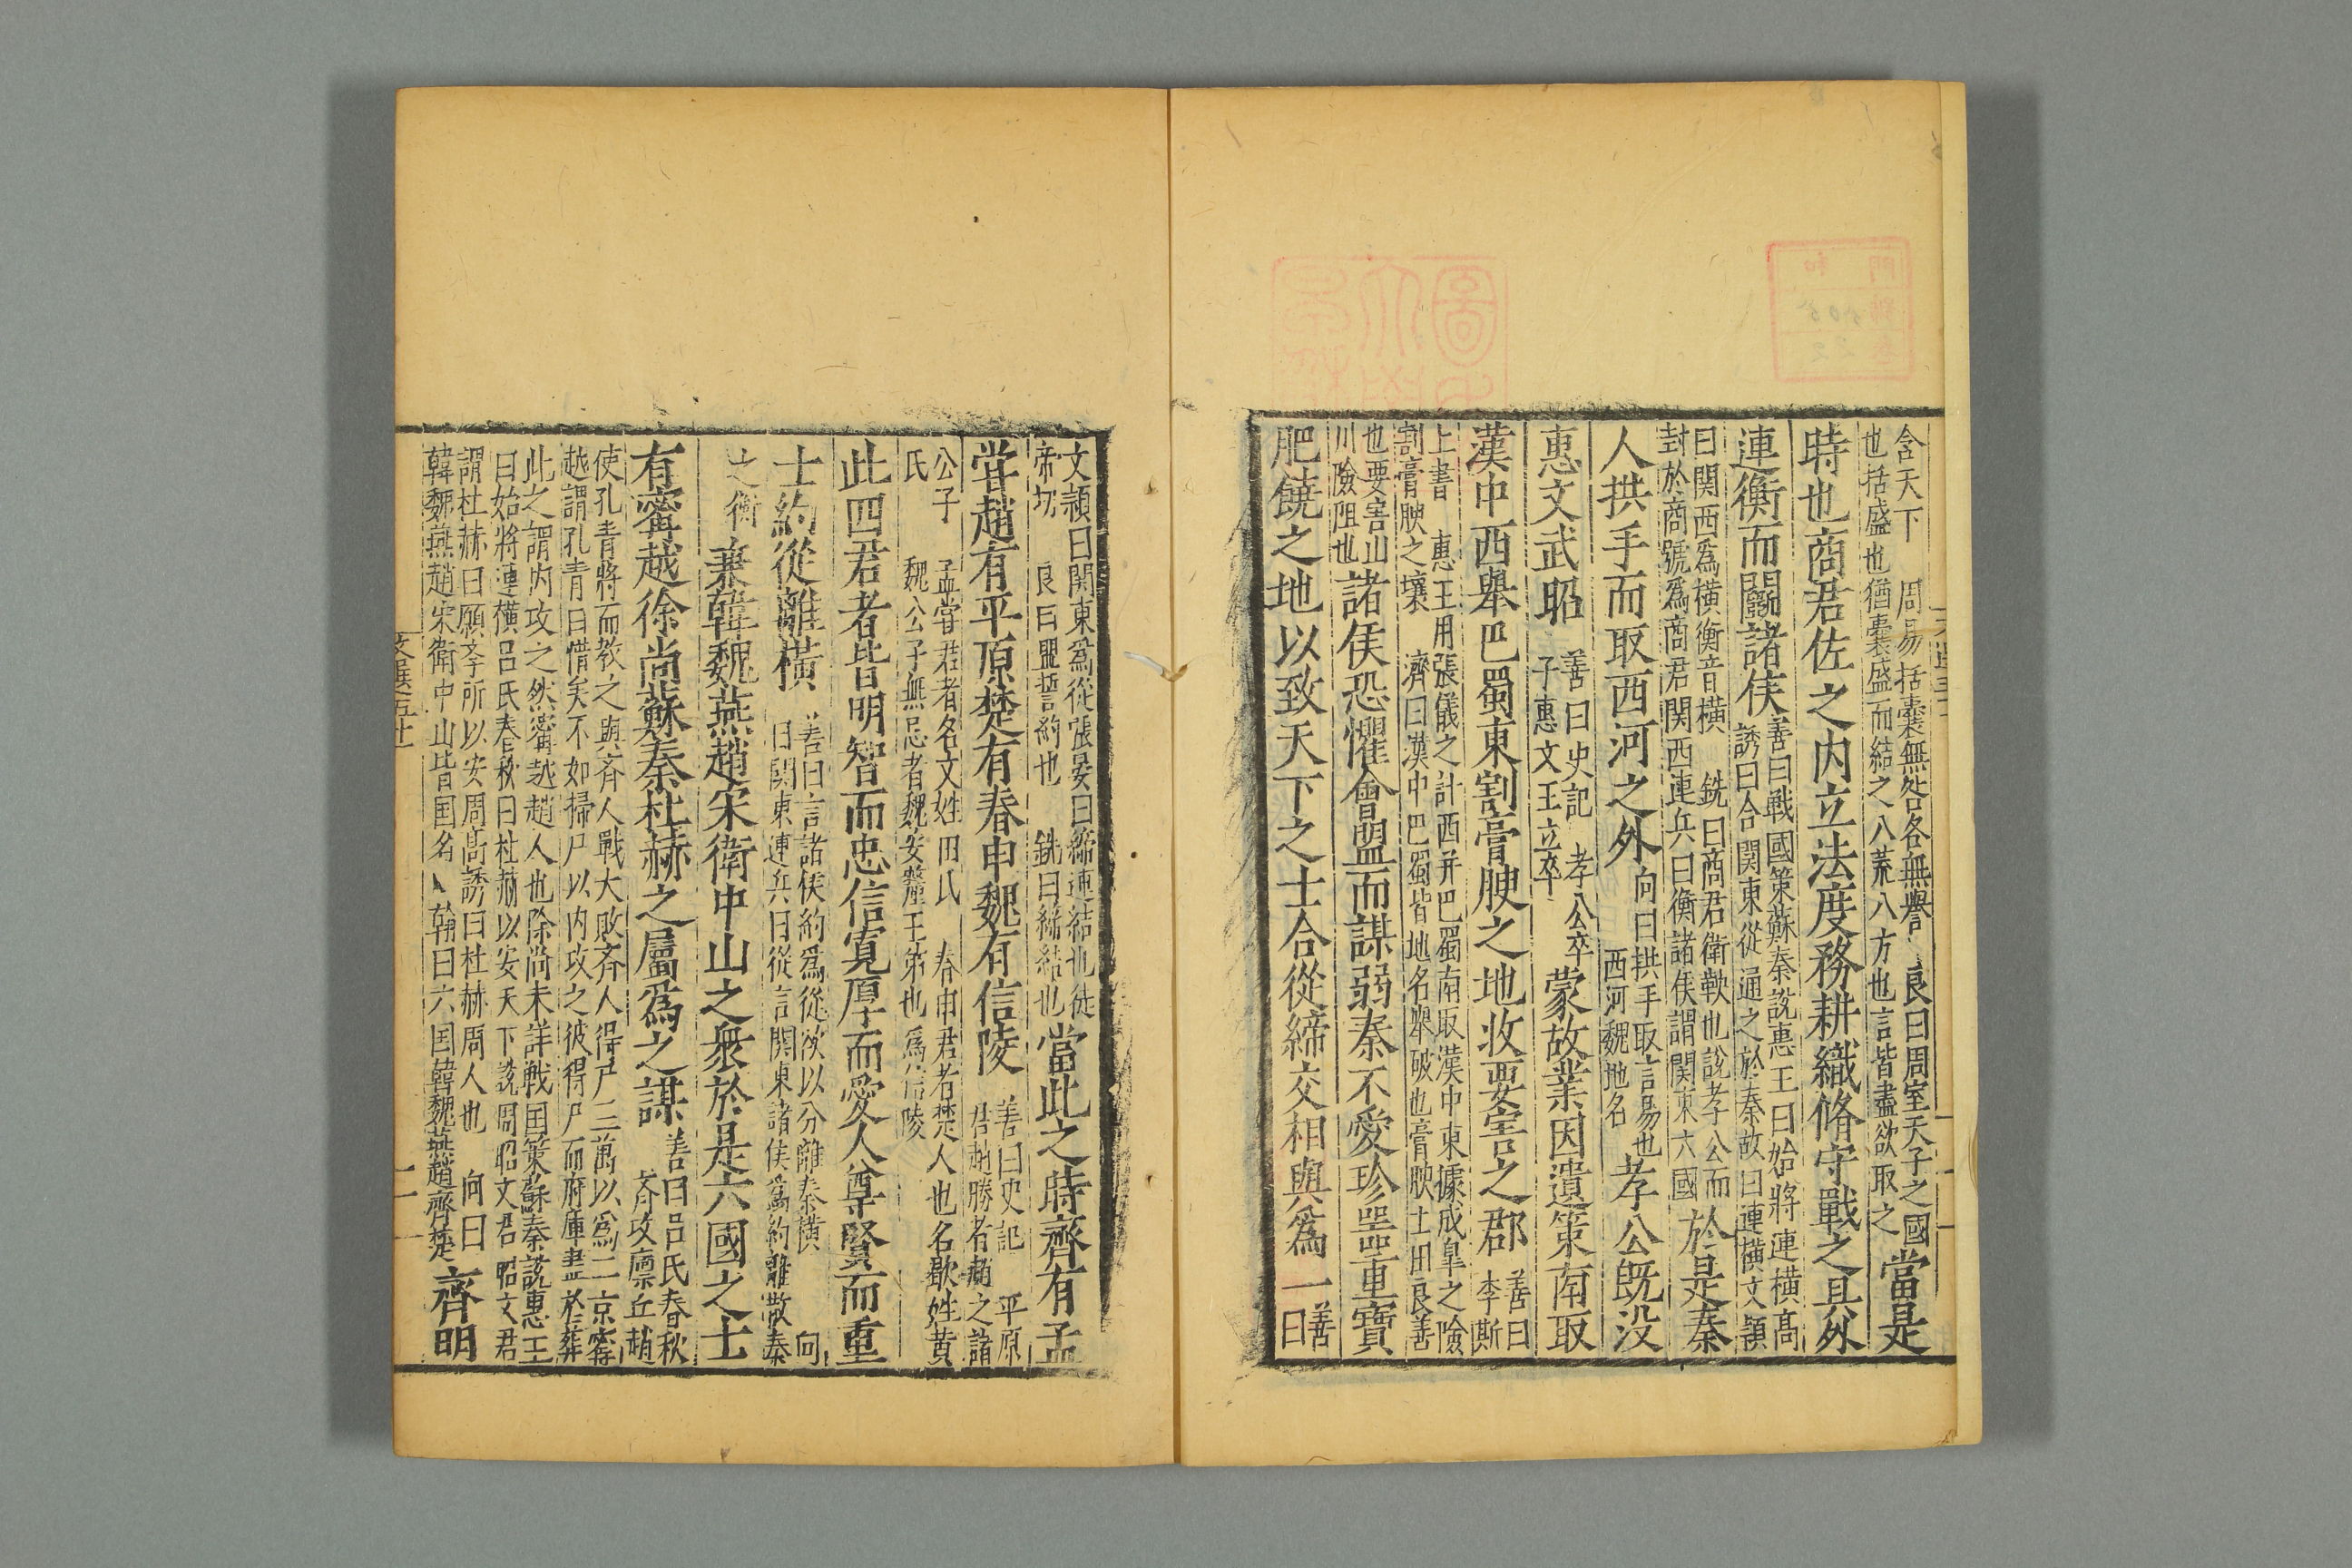 含天下　周易括囊無咎各無譽　良曰周室天子之國
也括盛也猶囊盛而結之八荒八方也言皆盡欲取之
當是
時也商君佐之內立法度務耕織脩守戰之具外
連衡而鬬諸侯
善曰戰國策蘇秦說惠王曰始將連橫髙
誘曰合関東從通之於秦故曰連橫文頴
曰関西爲橫衡音橫　銑曰商君衛鞅也說孝公而
封於商號爲商君関西連兵曰衡諸侯謂関東六國
於是秦
人拱手而取西河之外
向曰拱手取言易也
西河魏地名
孝公既没
惠文武昭
善曰史記　孝公卒
子惠文王立卒
蒙故業因遺策南取
漢中西舉巴蜀東割膏腴之地收要害之郡
善曰
李斯
上書　惠王用張儀之計西并巴蜀南取漢中東據成皐之險
割膏腴之壤　濟曰漢中巴蜀皆地名舉破也膏腴土田良善
也要害山
川險阻也
諸侯恐懼會盟而謀弱秦不愛珍噐重寶
肥饒之地以致天下之士合從締交相與爲一
善
曰
文頴曰関東爲從張晏曰締連結也徒
帝切　良曰盟誓約也　銑曰締結也
當此之時齊有孟
甞趙有平原楚有春申魏有信陵
善曰史記　平原
君趙勝者趙之諸
公子　孟甞君者名文姓田氏　春申君者楚人也名歇姓黄
氏　魏公子無忌者魏安釐王弟也爲信陵
此四君者皆明智而忠信寛厚而愛人尊賢而重
士約從離橫
善曰言諸侯約爲從欲以分離秦橫　向
曰関東連兵曰從言関東諸侯爲約離散秦
之衡
兼韓魏燕趙宋衛中山之衆於是六國之士
有甯越徐尚蘇秦杜赫之屬爲之謀
善曰吕氏春秋
齐攻廪丘趙
使孔青將而救之與齐人戰大敗齐人得尸三萬以爲二京甯
越謂孔青曰惜矣不如掃尸以内攻之彼得尸而府庫盡於葬
此之謂内攻之然甯越趙人也除尚未詳戰国策蘇秦說惠王
曰始將連橫吕氏春秋曰杜赫以安天下說周昭文君昭文君
謂杜赫曰願孝所以安周髙誘曰杜赫周人也　向曰
韓魏燕趙宋衛中山皆国名　翰曰六国韓魏燕趙齊楚
齊明
文選五十一
二